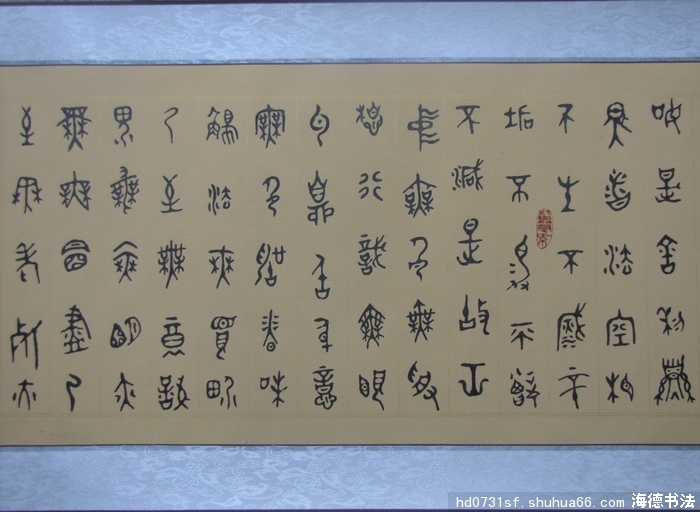 如是舍利子
是諸法空相
不生不滅不
垢不淨不增
不減是故空
中無色無受
想行識無眼
耳鼻舌身意
無色聲香味
觸法無眼界
乃至無意識
界無無明亦
無無明盡乃
至無老死亦
hd0731sf.shuhua66.com 海德书法